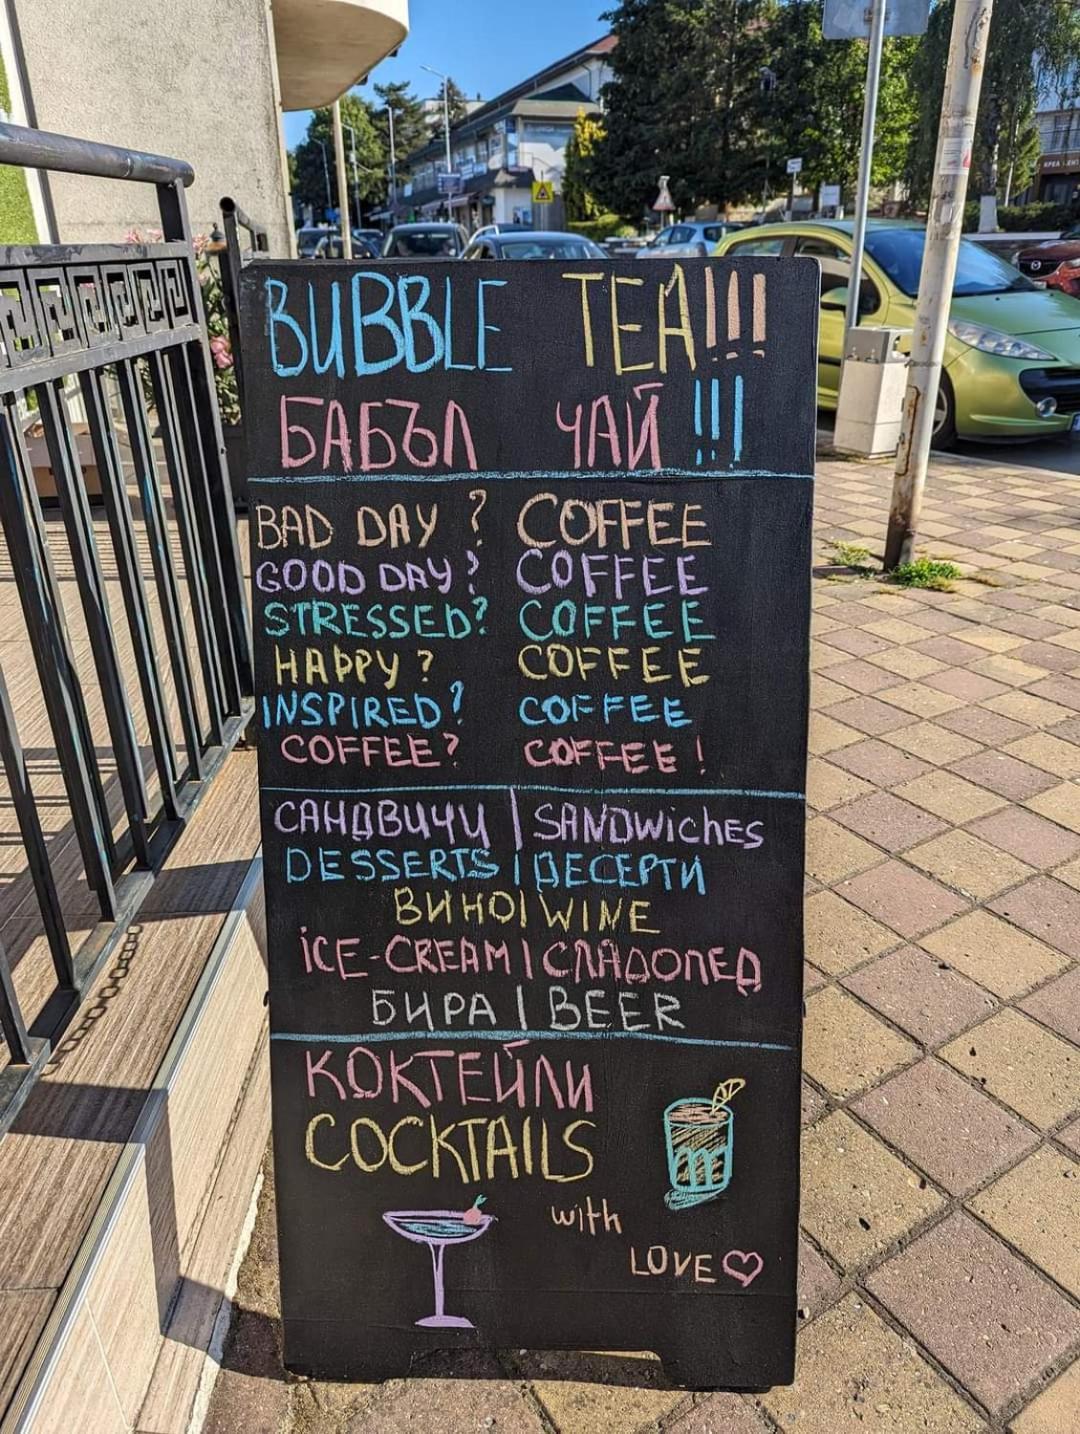 BUBBLE TEA!!!
БАБЪЛ ЧАЙ !!!
BAD DAY ? COFFEE
GOOD DAY? COFFEE
STRESSED? COFFEE
HAPPY ? COFFEE
INSPIRED? COFFEE
COFFEE? COFFEE !
САНДВИЧИ | SANDWichES
DESSERTS | ДЕСЕРТИ
ВИНО | WINE
iCE-CREAM | СЛАДОЛЕД
БИРА | BEER
КОКТЕЙЛИ
COCKTAILS
with
LOVE